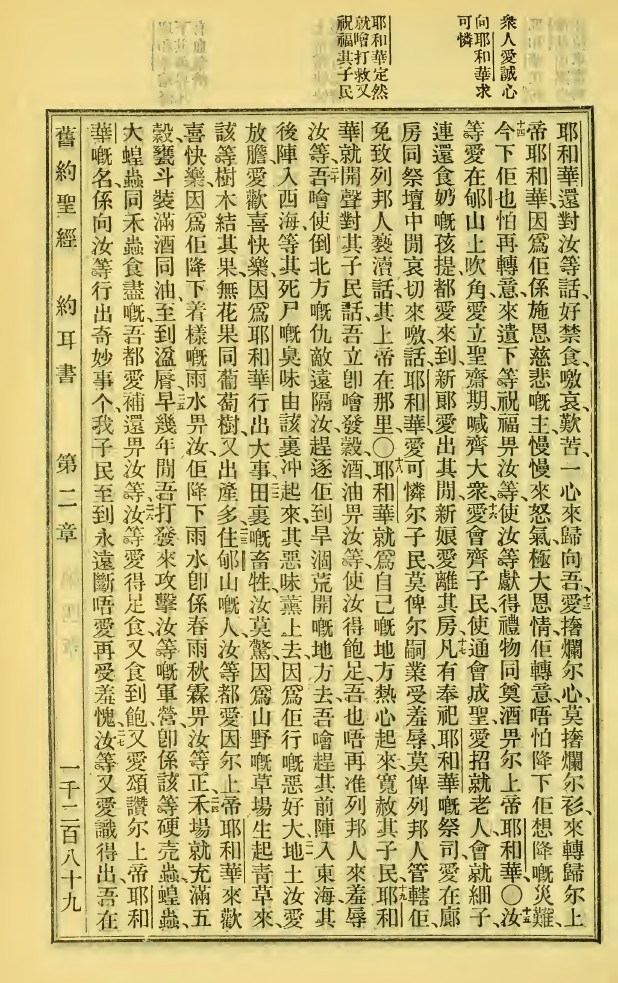 衆人愛誠心
向耶和華求
可憐
耶和華定然
就噲打救又
祝福其子民
耶和華還對汝等話好禁食噭哀歎苦一心來歸向吾十三愛搽爛尔心莫搽爛尔衫來轉歸尔上
帝耶和華因爲佢係施恩慈悲嘅主慢慢來怒氣極大恩情佢轉意唔怕降下佢想降嘅災難十四
今下佢也怕再轉意來遺下等祝福畀汝等使汝等獻得禮物同奠酒畀尔上帝耶和華〇十五汝
等愛在郇山上吹角愛立聖齋期喊齊大衆十六愛會齊子民使通會成聖愛招就老人會就細子
連還食奶嘅孩提都愛來到新郎愛出其間新娘愛離其房十七凡有奉祀耶和華嘅祭司愛在廊
房同祭壇中間哀切來噭話耶和華愛可憐尔子民莫俾尔嗣業受羞辱莫俾列邦人管轄佢
免致列邦人褻瀆話其上帝在那里〇十八耶和華就爲自己嘅地方熱心起來寬赦其子民十九耶和
華就開聲對其子民話吾立卽噲發穀酒油畀汝等使汝得飽足吾也唔再准列邦人來羞辱
汝等二十吾噲使倒北方嘅仇敵遠隔汝趕逐佢到旱涸荒開嘅地方去吾噲趕其前陣入東海其
後陣入西海等其死尸嘅臭味由該裏冲起來其惡味薰上去因爲佢行嘅惡好大二一地土汝愛
放膽愛歡喜快樂因爲耶和華行出大事二二田裏嘅畜牲汝莫驚因爲山野嘅草場生起靑草來
該等樹木結其果無花果同葡萄樹又出產多二三住郇山嘅人汝等都愛因尔上帝耶和華來歡
喜快樂因爲佢降下着樣嘅雨水畀汝佢降下雨水卽係春雨秋霖畀汝等正二四禾場就充滿五
穀甕斗裝滿酒同油至到溢唇二五早幾年間吾打發來攻擊汝等嘅軍營卽係該等硬壳蟲蝗蟲
大蝗蟲同禾蟲食盡嘅吾都愛補還畀汝等二六汝等愛得足食又食到飽又愛頌讚尔上帝耶和
華嘅名係向汝等行出奇妙事个我子民至到永遠斷唔愛再受羞愧二七汝等又愛識得出吾在
舊約聖經　約耳書　第二章　一千二百八十九